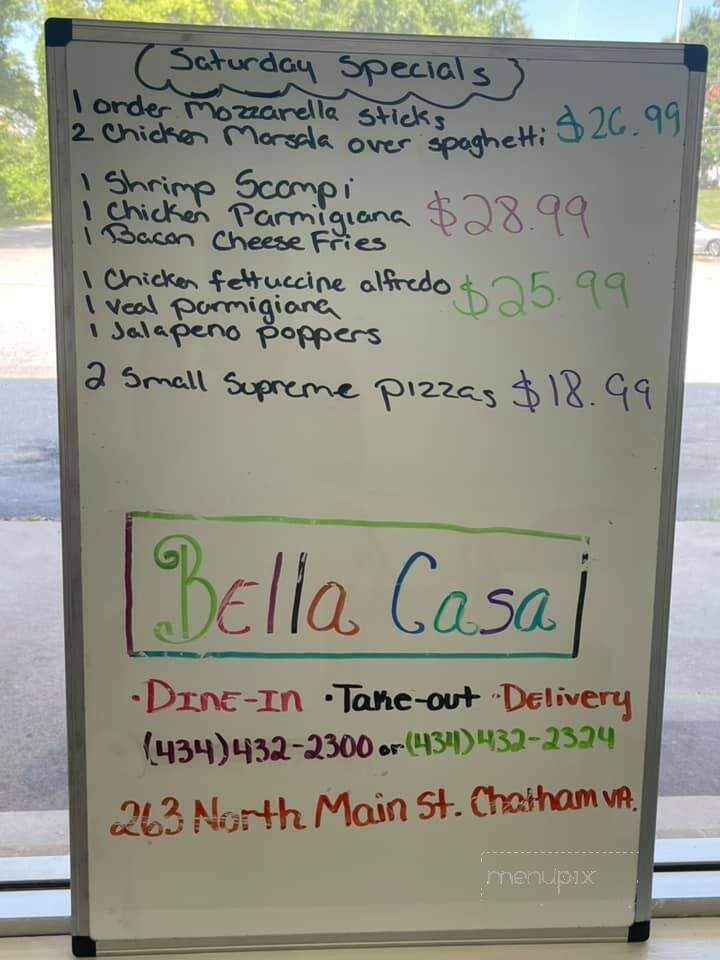 Saturday Specials
1 order Mozzarella sticks
2 Chicken Marsala over spaghetti $26.99
1 Shrimp Scampi
1 Chicken Parmigiana $28.99
1 Bacon Cheese Fries
1 Chicken fettuccine alfredo $25.99
1 veal parmigiana
1 Jalapeno poppers
2 Small Supreme pizzas $18.99
Bella Casa
·Dine-In ·Take-out ·Delivery
(434)432-2300 or (434)432-2324
263 North Main St. Chatham VA.
menupix